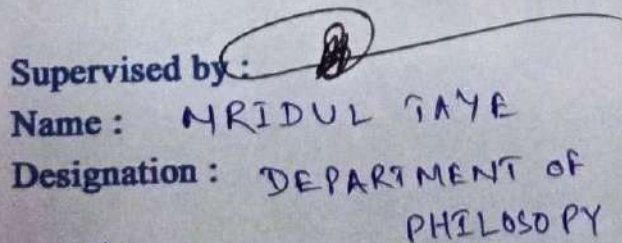 Supervised by :
Name : MRIDUL TAYE
Designation : DEPARTMENT OF
PHILOSOPY